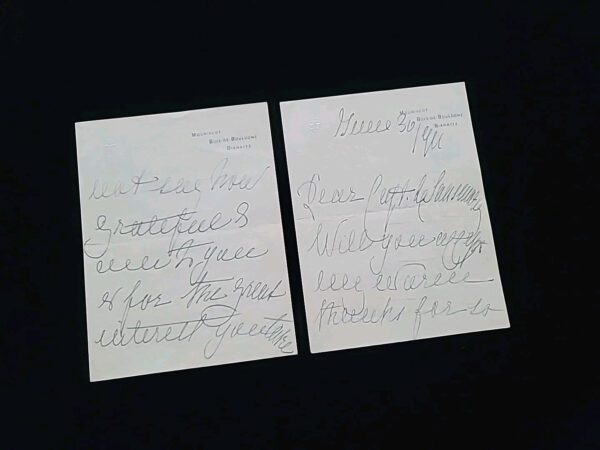 MOURISCOT
BOIS-DE-BOULOGNE
BIARRITZ
not say how
grateful I
am to you
& for the great
interest you take
MOURISCOT
BOIS-DE-BOULOGNE
BIARRITZ
June 30/911
Dear Capt.
Will you
my warm
thanks for so